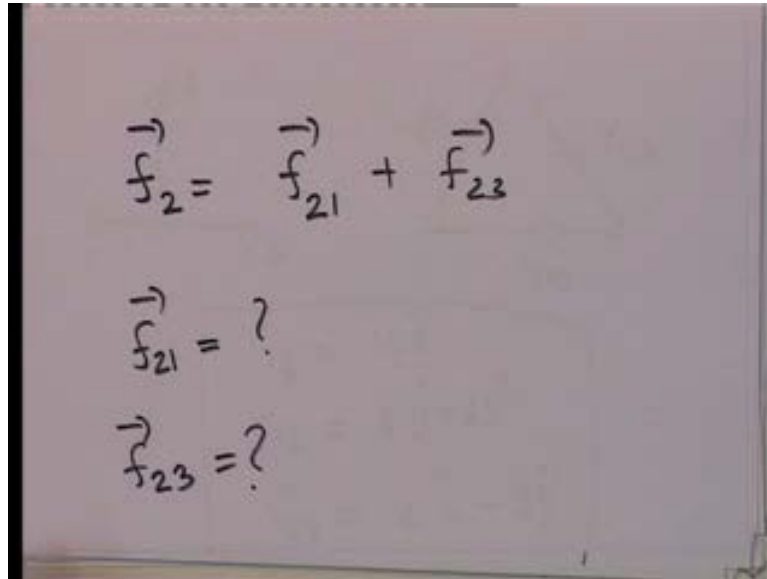 f⃗₂ = f⃗₂₁ + f⃗₂₃
f⃗₂₁ = ?
f⃗₂₃ = ?